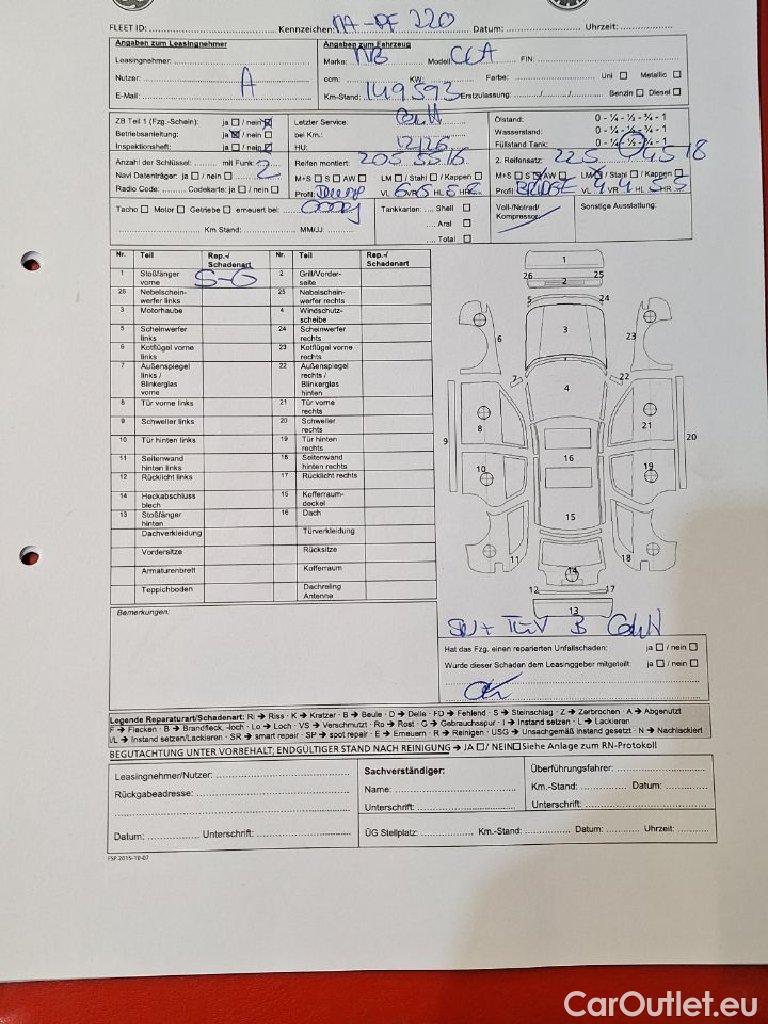 FLEET ID: Kennzeichen: MA-DF 220 Datum: Uhrzeit:
Angaben zum Leasingnehmer Angaben zum Fahrzeug
Leasingnehmer: Marke: MB Modell: CLA FIN:
Nutzer: A ccm: KW: Farbe: Uni ☐ Metallic ☐
E-Mail: Km-Stand: 149593 Erstzulassung: / / Benzin ☐ Diesel ☐
ZB Teil 1 (Fzg.-Schein): ja ☐ / nein ☒ Letzter Service: Ölstand: 0 - ¼ - ½ - ¾ - 1
Betriebsanleitung: ja ☒ / nein ☐ bei Km.: Wasserstand: 0 - ¼ - ½ - ¾ - 1
Inspektionsheft: ja ☐ / nein ☒ HU: 12/26 Füllstand Tank: 0 - ¼ - ½ - ¾ - 1
Anzahl der Schlüssel: mit Funk: 2 Reifen montiert: 205 55 16 2. Reifensatz: 225 45 18
Navi Datenträger: ja ☐ / nein ☐ M+S ☐ S ☐ AW ☐ LM ☐ / Stahl ☐ / Kappen ☐ M+S ☐ S ☒ AW ☐ LM ☒ / Stahl ☐ / Kappen ☐
Radio Code: Codekarte: ja ☐ / nein ☐ Profil: VL 6 VR 5 HL 5 HR Profil: BRIDGE VL 4 VR 4 HL 5 HR 5
Tacho ☐ Motor ☐ Getriebe ☐ erneuert bei: Tankkarten: Shell ☐ Voll-/Notrad/ Sonstige Ausstattung:
Aral ☐ Kompressor:
Km. Stand: MM/JJ: Total ☐
Nr. Teil Rep.-/ Schadenart Nr. Teil Rep.-/ Schadenart
1 Stoßfänger vorne S-G 2 Grill/Vorder- seite
26 Nebelschein- werfer links 25 Nebelschein- werfer rechts
3 Motorhaube 4 Windschutz- scheibe
5 Scheinwerfer links 24 Scheinwerfer rechts
6 Kotflügel vorne links 23 Kotflügel vorne rechts
7 Außenspiegel links / Blinkerglas vorne 22 Außenspiegel rechts / Blinkerglas hinten
8 Tür vorne links 21 Tür vorne rechts
9 Schweller links 20 Schweller rechts
10 Tür hinten links 19 Tür hinten rechts
11 Seitenwand hinten links 18 Seitenwand hinten rechts
12 Rücklicht links 17 Rücklicht rechts
14 Heckabschluss blech 15 Kofferraum- deckel
13 Stoßfänger hinten 16 Dach
Dachverkleidung Türverkleidung
Vordersitze Rücksitze
Armaturenbrett Kofferraum
Teppichboden Dachreling Antenne
1
26 2 25
5 24
6 3 23
7 22
4
8 21
9 20
16
10 19
15
11 18
14
12 17
13
Bemerkungen:
TÜV B
Hat das Fzg. einen reparierten Unfallschaden: ja ☐ / nein ☐
Wurde dieser Schaden dem Leasinggeber mitgeteilt: ja ☐ / nein ☐
Legende Reparaturart/Schadenart: Ri → Riss · K → Kratzer · B → Beule · D → Delle · FD → Fehlend · S → Steinschlag · Z → Zerbrochen · A → Abgenutzt
F → Flecken · B → Brandfleck, -loch · Lo → Loch · VS → Verschmutzt · Ro → Rost · G → Gebrauchsspur · I → Instand setzen · L → Lackieren
I/L → Instand setzen/Lackieren · SR → smart repair · SP → spot repair · E → Erneuern · R → Reinigen · USG → Unsachgemäß instand gesetzt · N → Nachlackiert
BEGUTACHTUNG UNTER VORBEHALT; ENDGÜLTIGER STAND NACH REINIGUNG → JA ☐ / NEIN ☐ Siehe Anlage zum RN-Protokoll
Leasingnehmer/Nutzer: Sachverständiger: Überführungsfahrer:
Rückgabeadresse: Name: Km.-Stand: Datum:
Unterschrift: Unterschrift:
Datum: Unterschrift: ÜG Stellplatz: Km.-Stand: Datum: Uhrzeit:
FSP 2015-10-07
CarOutlet.eu